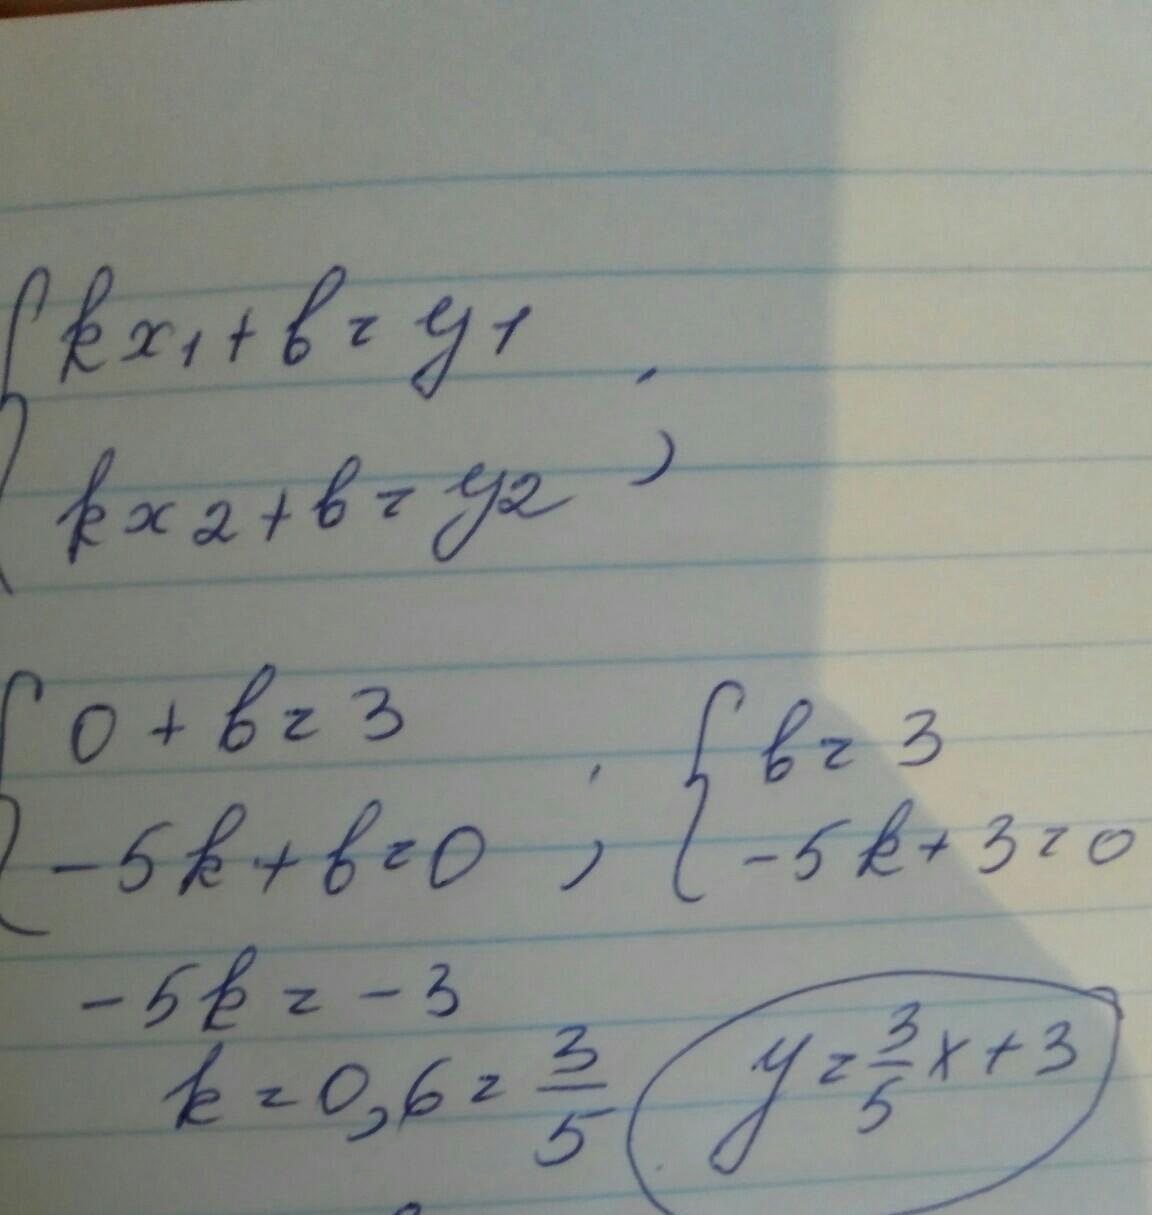 kx₁ + b = y₁
kx₂ + b = y₂ ;
0 + b = 3
-5k + b = 0 ; b = 3
-5k + 3 = 0
-5k = -3
k = 0,6 = 3/5 y = 3/5 x + 3